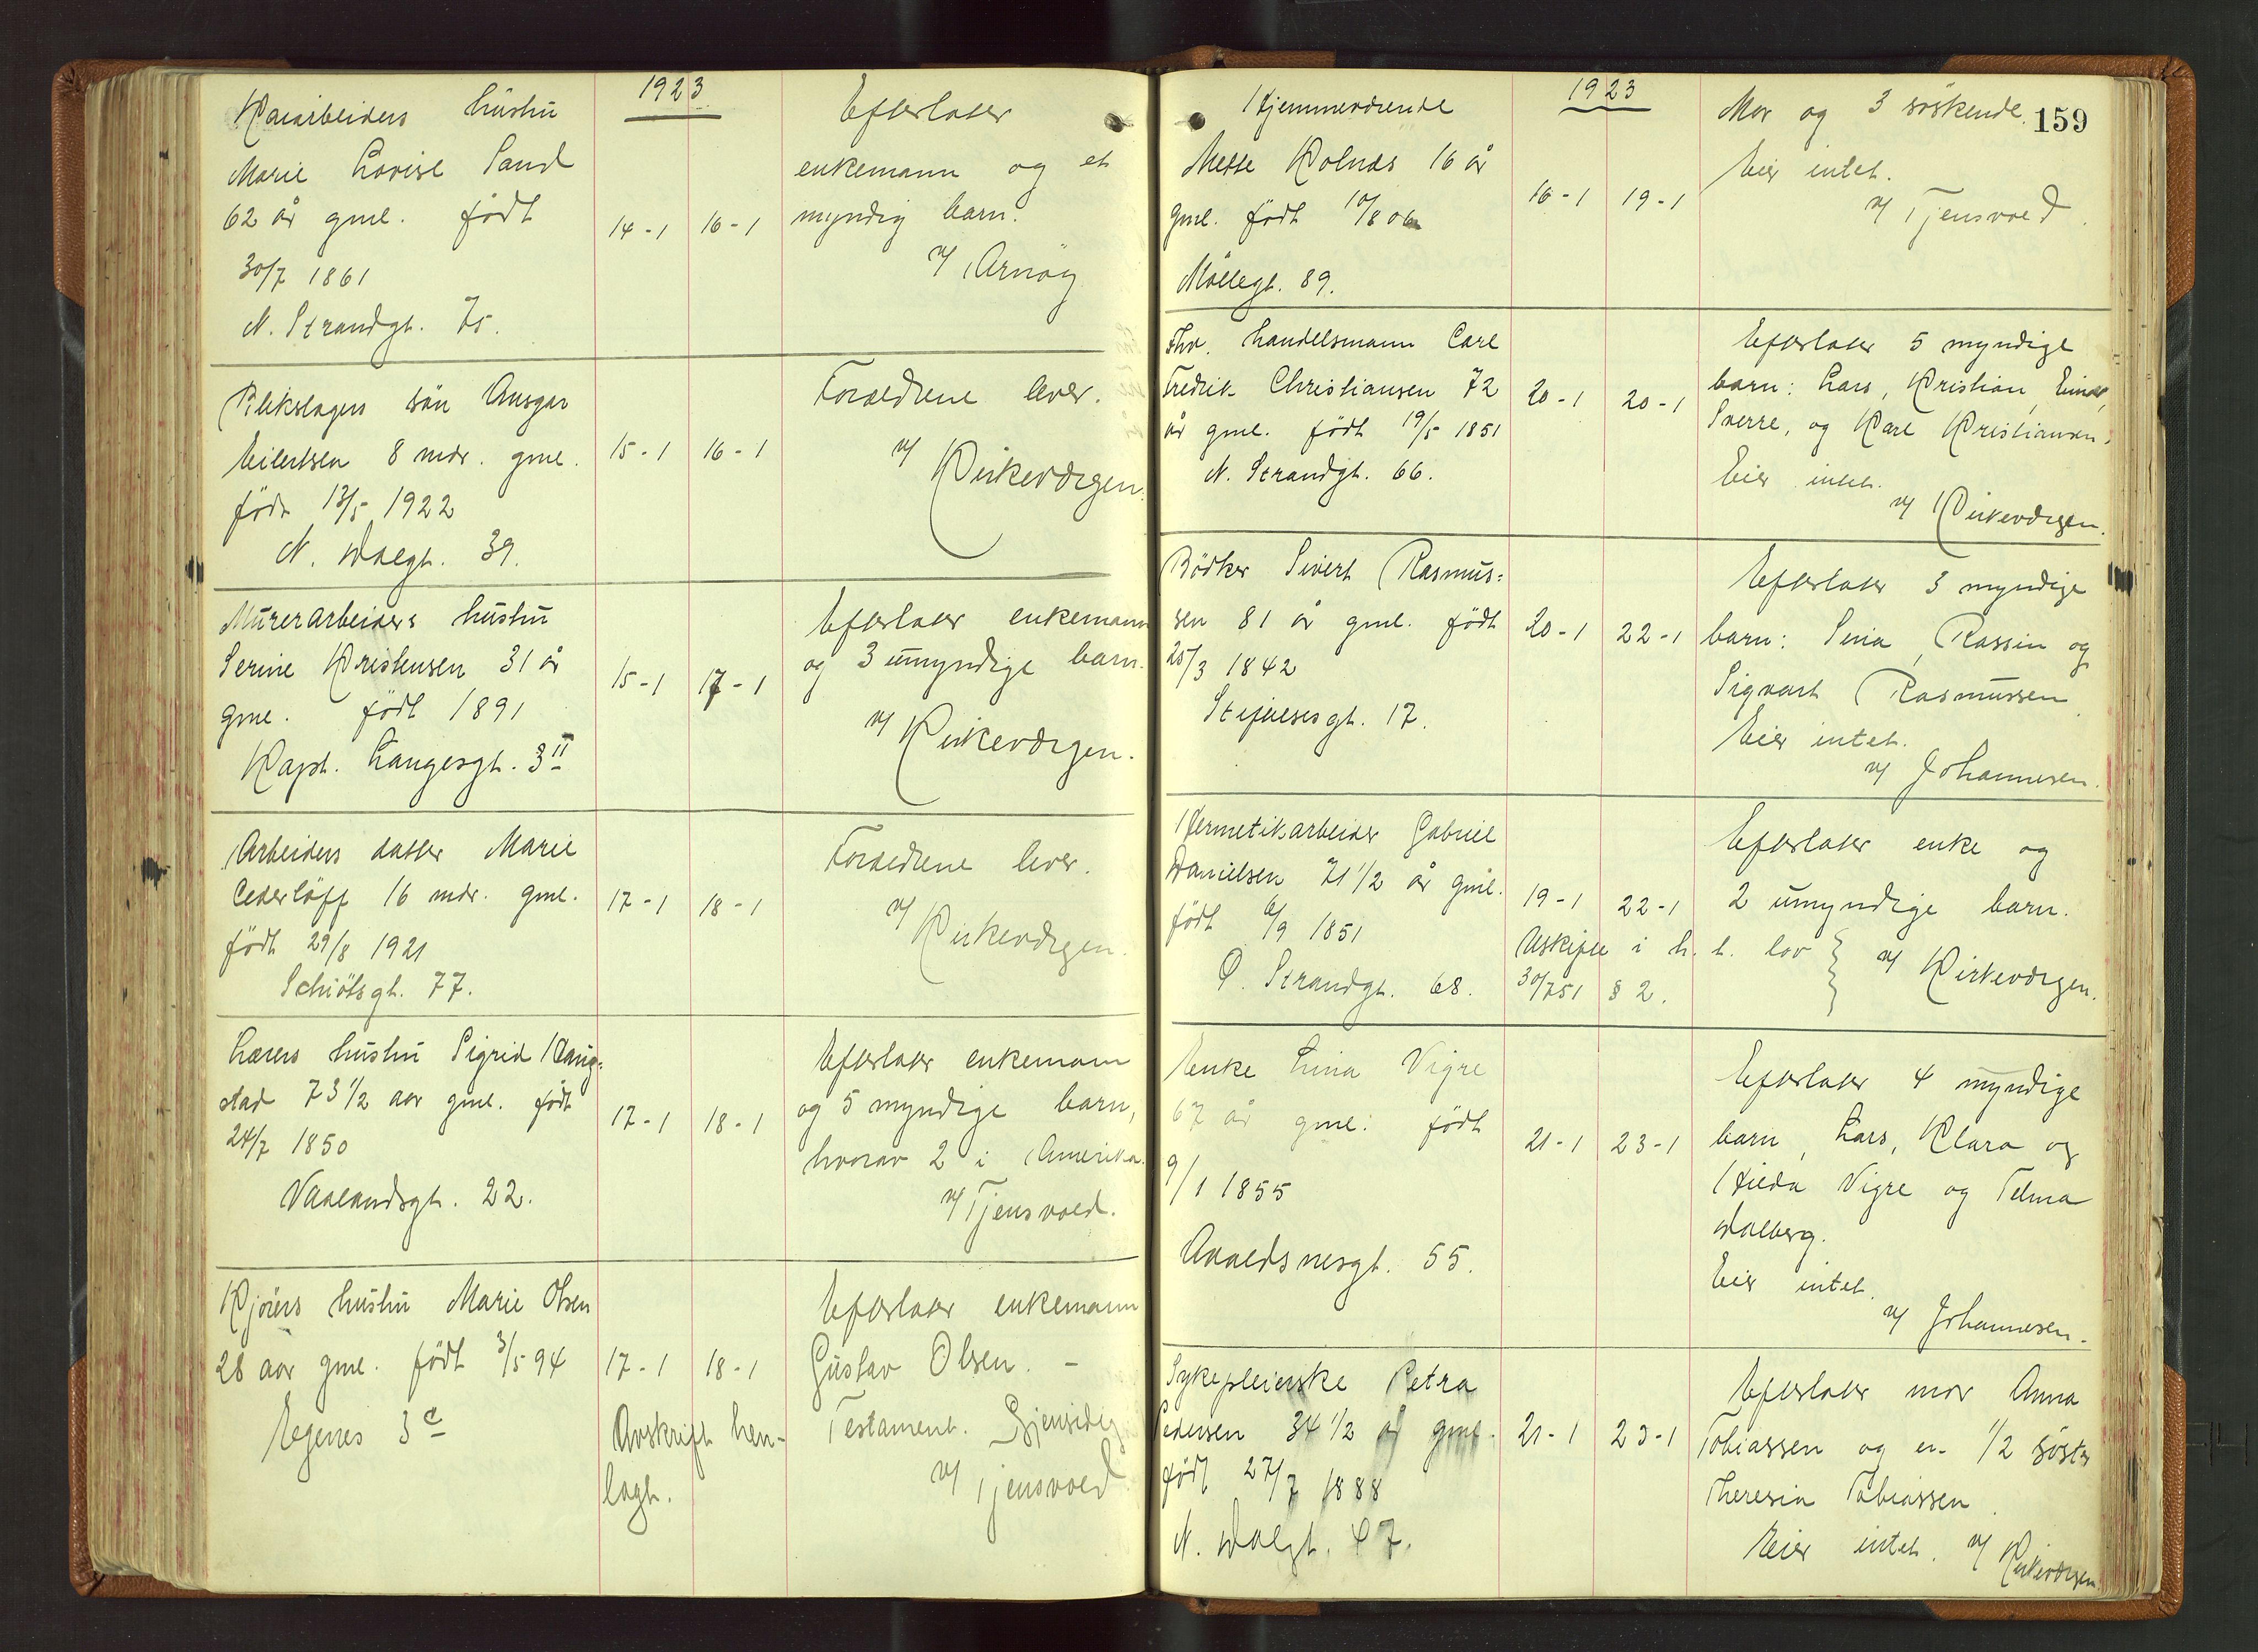 1923
Kaiarbeiders hustru
Marie Lovise Sand
62 år gml. født
30/7 1861
N. Strandgt. 75.
14-1 16-1
Efterlater
enkemann og et
myndig barn.
v/ Arnøy
Blikslagers søn Ansgar
Eilertsen 8 mdr. gml.
født 13/5 1922
N. Dalgt. 39.
15-1 16-1
Foraeldrene lever.
v/ Kirkeværgen.
Murerarbeiders hustru
Serine Kristensen 31 år
gml. født 1891
Kapt. Langesgt. 3 II
15-1 17-1
Efterlater enkemann
og 3 umyndige barn.
v/ Kirkeværgen.
Arbeiders datter Marie
Cederløff 16 mdr. gml.
født 29/8 1921
Schiøtsgt. 77.
17-1 18-1
Foraeldrene lever.
v/ Kirkeværgen.
Lærers hustru Sigrid Haug=
stad 73 1/2 aar gml. født
24/7 1850
Vaalandsgt. 22.
17-1 18-1
Efterlater enkemann
og 5 myndige barn,
hvorav 2 i Amerika.
v/ Tjensvold.
Kjørers hustru Marie Olsen
28 aar gml. født 3/5 94
Egenes 3 c
17-1 18-1
Avskrift hen-
lagt.
Efterlater enkemann
Gustav Olsen. -
Testament. Gjensidig
v/ Tjensvold
159
1923
Hjemmeværende
Mette Kolnes 16 år
gml. født 10/8 06
Møllegt. 89.
16-1 19-1
Mor og 3 søskende.
Eier intet.
v/ Tjensvold.
Fhv. handelsmann Carl
Fredrik Christiansen 72
år gml. født 19/5 1851
N. Strandgt. 66.
20-1 20-1
Efterlater 5 myndige
barn: Lars, Kristian, Einar,
Sverre, og Karl Kristiansen.
Eier intet.
v/ Kirkeværgen.
Bødker Sivert Rasmus=
sen 81 år gml. født
25/3 1842
Stiftelsesgt. 17.
20-1 22-1
Efterlater 3 myndige
barn: Sina, Rassin og
Sigvart Rasmussen
Eier intet.
v/ Johannesen.
Hermetikarbeider Gabriel
Danielsen 71 1/2 år gml.
født 6/9 1851
Ø. Strandgt. 68.
19-1 22-1
Uskifte i h. t. lov
30/7 51 § 2.
Efterlater enke og
2 umyndige barn.
v/ Kirkeværgen.
Enke Lina Vigre
67 år gml. født
9/1 1855
Avaldsnesgt. 55.
21-1 23-1
Efterlater 4 myndige
barn, Lars, Klara og
Hilda Vigre og Telma
Dalberg.
Eier intet.
v/ Johannesen.
Sykepleierske Petra
Pedersen 34 1/2 år gml.
født 27/7 1888
N. Dalgt. 47.
21-1 23-1
Efterlater mor Anna
Tobiassen og en 1/2 søster
Theresia Tobiassen
Eier intet. v/ Kirkeværgen.